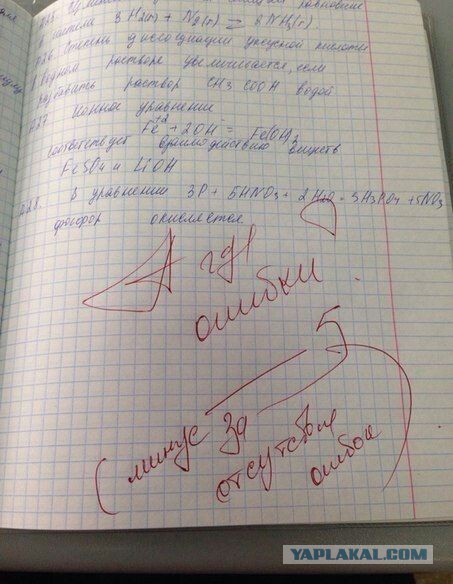 равновесие
3 H2(г) + N2(г) = 2 NH3(г).
Степень диссоциации уксусной кислоты
в водном растворе увеличивается, если
разбавить раствор CH3COOH водой
27 Ионное уравнение
Fe+2 + 2OH- = Fe(OH)2
соответствует взаимодействию веществ
FeSO4 и LiOH
28. В уравнении 3P + 5HNO3 + 2H2O = 3H3PO4 + 5NO
фосфор окисляется
А где
ошибки ?
5
(минус за
отсутствие
ошибок)
YAPLAKAL.COM